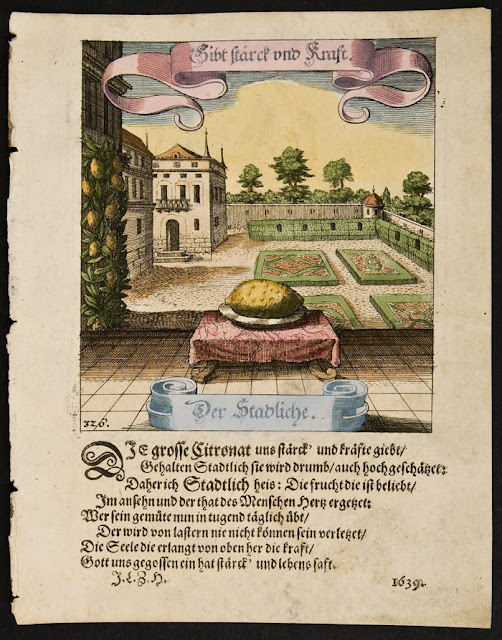 Gibt stärck vnd Kraft.
Der Stadliche.
326.
DIE grosse Citronat uns stärck' und kräfte giebt/
Gehalten Stadtlich sie wird drumb/ auch hoch geschätzet:
Daher ich Stadtlich heis: Die frucht die ist beliebt/
Im ansehn und der that des Menschen Hertz ergetzet:
Wer sein gemüte nun in tugend täglich übt/
Der wird von lastern nie nicht können sein verletzet/
Die Seele die erlangt von oben her die kraft/
Gott uns gegossen ein hat stärck' und lebens saft.
J. L. Z. H.
1639.